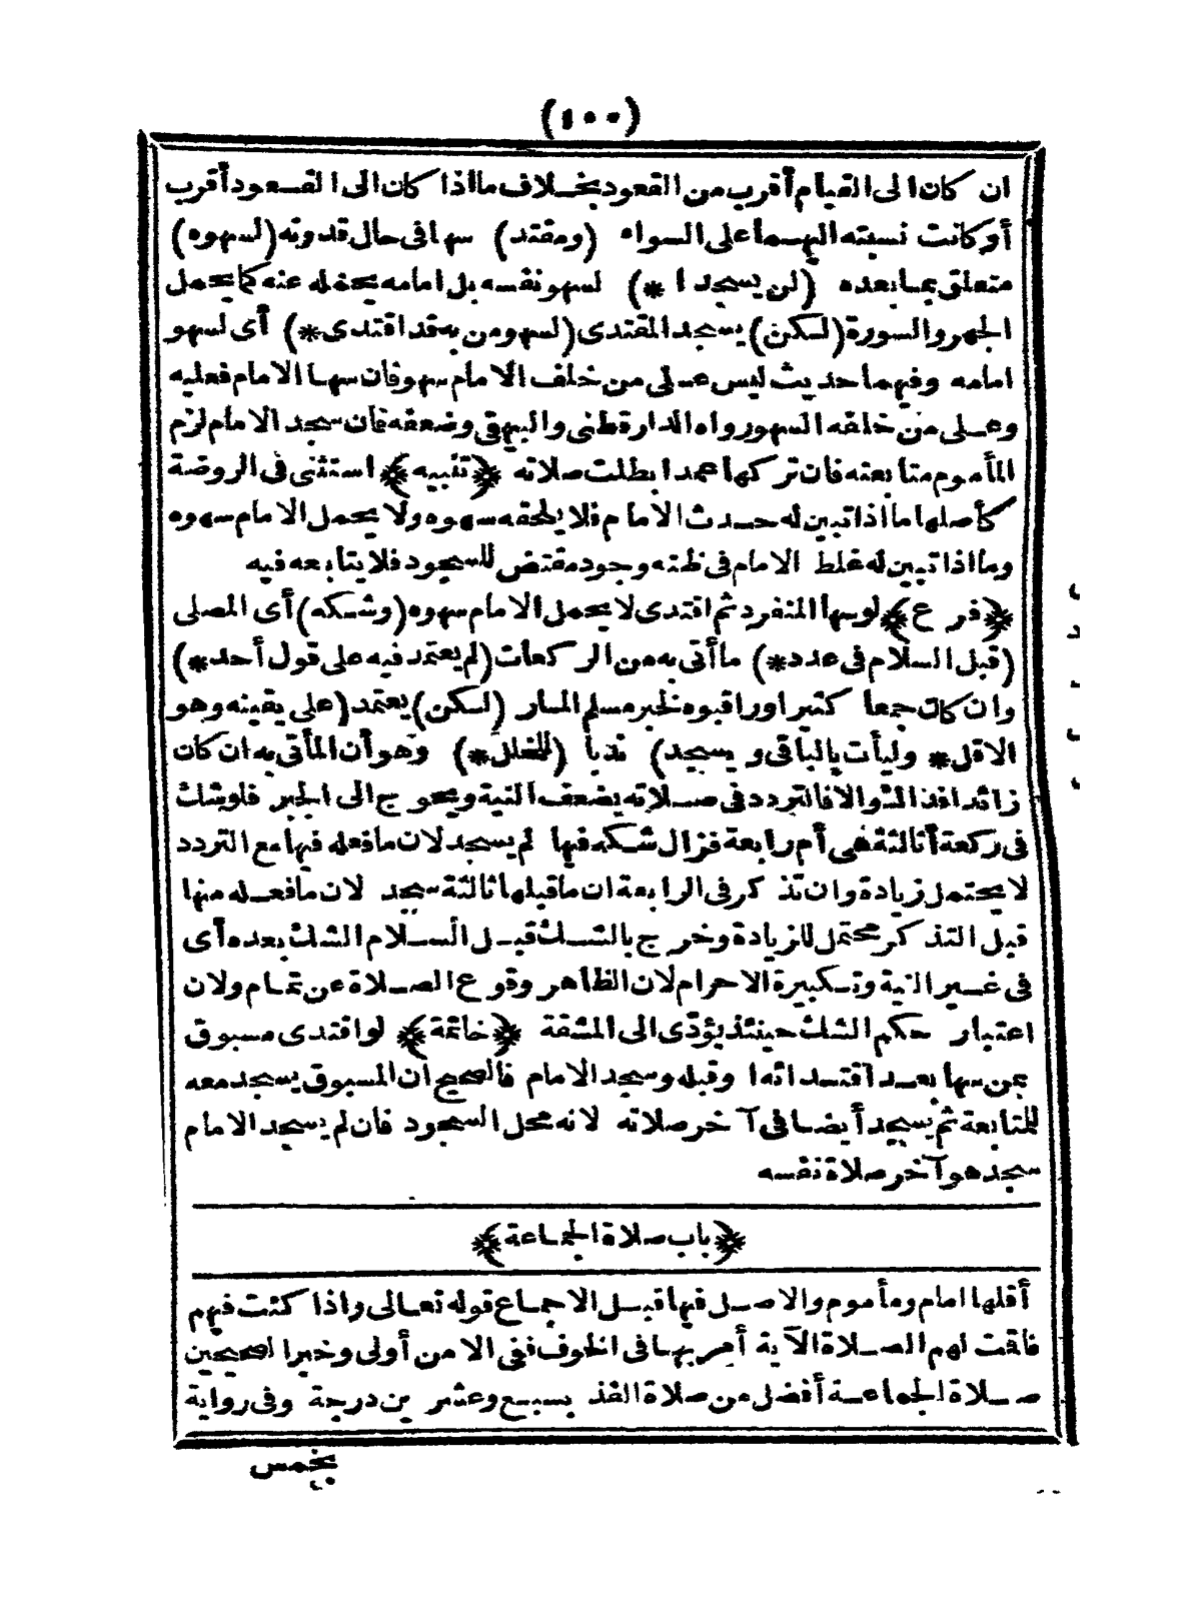 (١٠٠)
ان كان الى القيام أقرب من القعود بخلاف ما اذا كان الى القعود أقرب
أو كانت نسبته اليهما على السواء (ومقتد) سها فى حال قدوته (لسهوه)
متعلق بما بعده (لن يسجدا *) لسهو نفسه بل امامه يحمله عنه كما يحمل
الجهر والسورة (لكن) يسجد المقتدى (لسهو من به قد اقتدى *) أى لسهو
امامه وفيهما حديث ليس على من خلف الامام سهو فان سها الامام فعليه
وعلى من خلفه السهو رواه الدارقطنى والبيهقى وضعفه فان سجد الامام لزم
المأموم متابعته فان تركها عمدا بطلت صلاته ﴿تنبيه﴾ استثنى فى الروضة
كأصلها ما اذا تبين له حدث الامام فلا يلحقه سهوه ولا يحمل الامام سهوه
وما اذا تبين له غلط الامام فى ظنه وجود مقتض للسجود فلا يتابعه فيه
﴿فرع﴾ لو سها المنفرد ثم اقتدى لا يحمل الامام سهوه (وشكه) أى المصلى
(قبل السلام فى عدد *) ما أتى به من الركعات (لم يعتمد فيه على قول أحد *)
وان كان جمعا كثيرا وراقبوه لخبر مسلم المار (لكن) يعتمد (على يقينه وهو
الاقل * وليأت بالباقى ويسجد) ندبا (للخلل *) وهو أن المأتى به ان كان
زائدا فذاك والا فالتردد فى صلاته يضعف النية ويحوج الى الجبر فلو شك
فى ركعة أثالثة هى أم رابعة فزال شكه فيها لم يسجد لان ما فعله فيها مع التردد
لا يحتمل زيادة وان تذكر فى الرابعة ان ما قبلها ثالثة سجد لان ما فعله منها
قبل التذكر محتمل للزيادة وخرج بالشك قبل السلام الشك بعده أى
فى غير النية وتكبيرة الاحرام لان الظاهر وقوع الصلاة عن تمام ولان
اعتبار حكم الشك حينئذ يؤدّى الى المشقة ﴿خاتمة﴾ لو اقتدى مسبوق
بمن سها بعد اقتدائه أو قبله وسجد الامام فالصحيح ان المسبوق يسجد معه
للمتابعة ثم يسجد أيضا فى آخر صلاته لانه محل السجود فان لم يسجد الامام
سجد هو آخر صلاة نفسه
﴿باب صلاة الجماعة﴾
أقلها امام ومأموم والاصل فيها قبل الاجماع قوله تعالى واذا كنت فيهم
فأقمت لهم الصلاة الآية أمر بها فى الخوف ففى الامن أولى وخبر الصحيحين
صلاة الجماعة أفضل من صلاة الفذ بسبع وعشرين درجة وفى رواية
بخمس